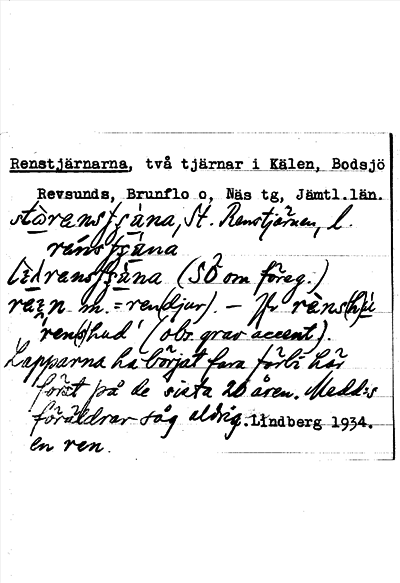 Renstjärnarna, två tjärnar i Kälen, Bodsjö
Revsunds, Brunflo o, Näs tg, Jämtl.län.
St. Renstjärnen, l.
(SÖ om föreg.)
m. = ren(djur). – Jfr
'ren(s)hud' (obs. grav accent).
Lapparna ha börjat fara förbi här
först på de sista 20 åren. Medd:s
föräldrar såg aldrig. Lindberg 1934.
en ren.